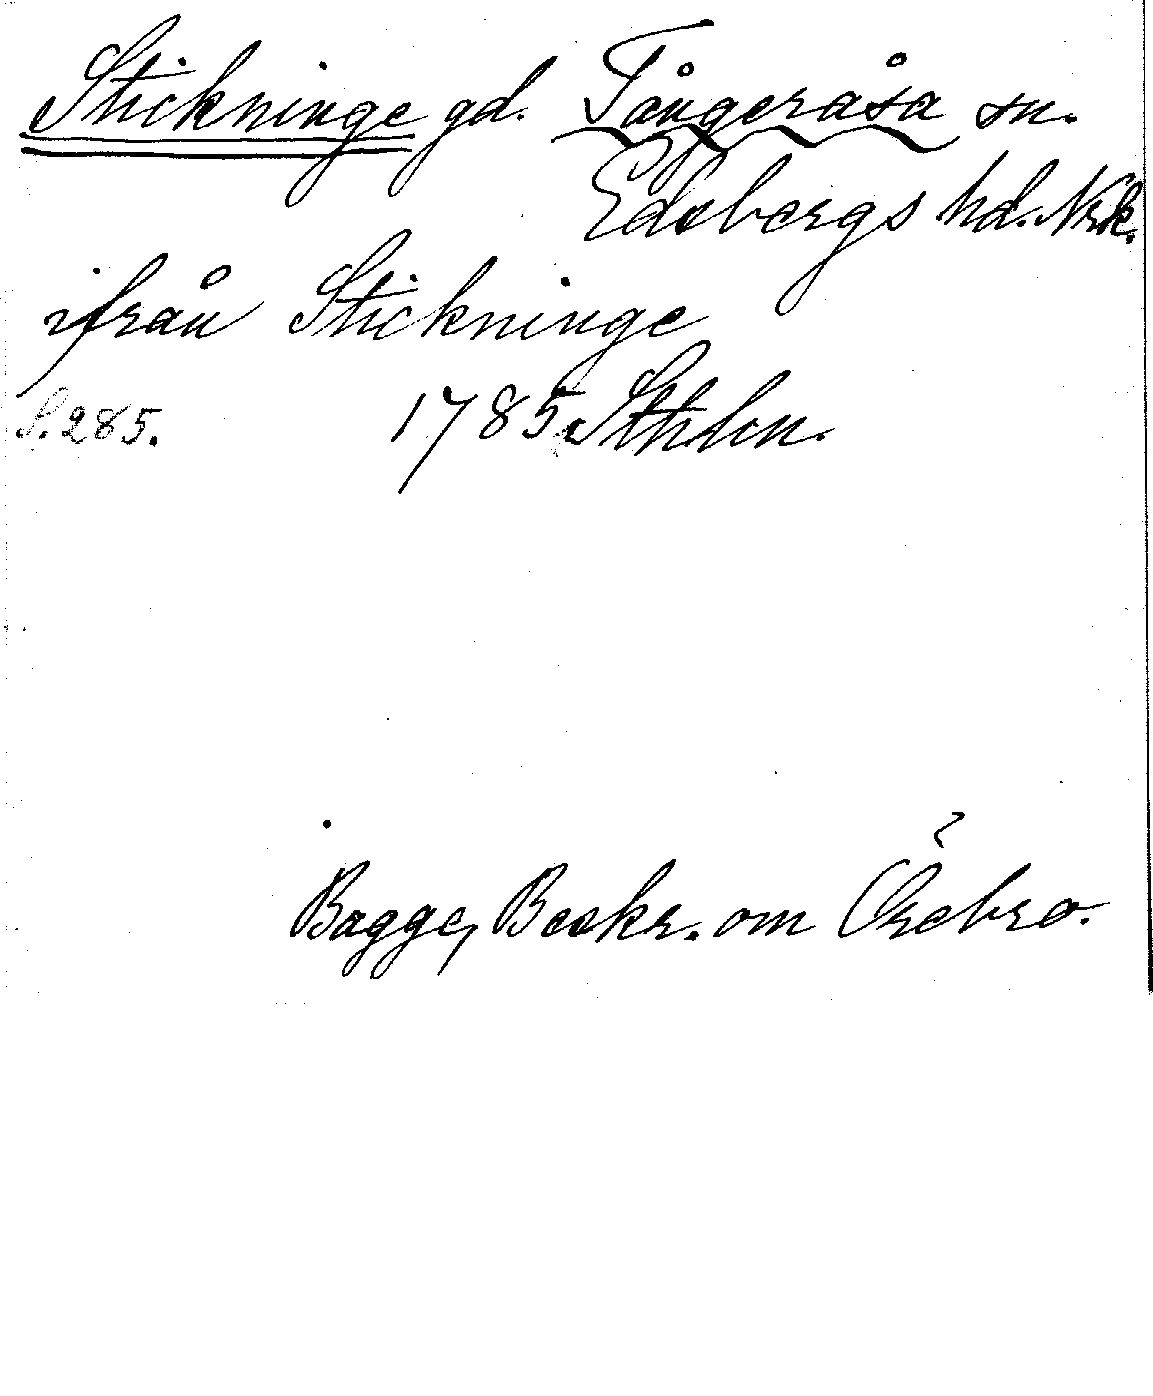 Stickninge gd. Tångeråsa sn.
Edsbergs hd. Nrk.
ifrån Stickninge
S. 285. 1785 Sthlm.
Bagge, Beskr. om Örebro.